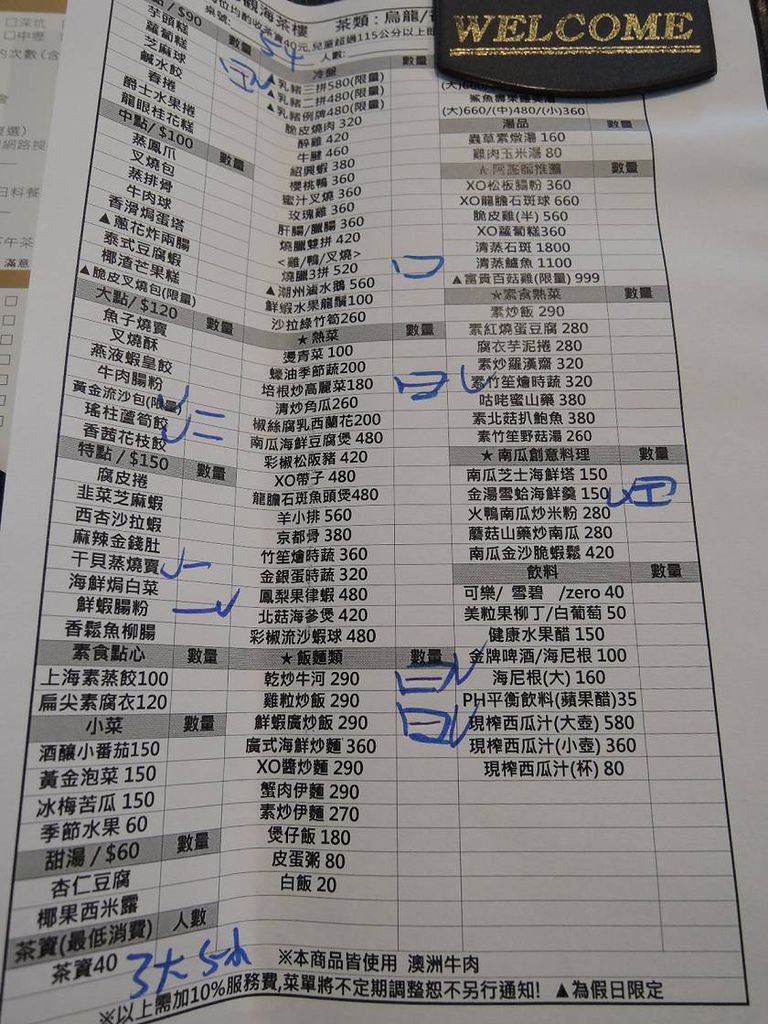 WELCOME
觀海茶樓
茶類：烏龍/
位均酌收茶資40元,兒童超過115公分以上
桌號:
人數:
54
點/$90
數量
芋頭糕
蘿蔔糕
芝麻球
鹹水餃
春捲
爵士水果捲
龍眼桂花糕
中點/ $100
數量
蒸鳳爪
叉燒包
蒸排骨
牛肉球
香滑焗蛋塔
▲蔥花炸兩腸
泰式豆腐蝦
椰渣芒果糕
▲脆皮叉燒包(限量)
大點/ $120
數量
魚子燒賣
叉燒酥
燕液蝦皇餃
牛肉腸粉
黃金流沙包(限量)
瑤柱蘆筍餃
香茜花枝餃
特點/ $150
數量
腐皮捲
韭菜芝麻蝦
西杏沙拉蝦
麻辣金錢肚
干貝蒸燒賣
海鮮焗白菜
鮮蝦腸粉
香鬆魚柳腸
素食點心
數量
上海素蒸餃100
扁尖素腐衣120
小菜
數量
酒釀小番茄150
黃金泡菜 150
冰梅苦瓜 150
季節水果 60
甜湯 / $60
數量
杏仁豆腐
椰果西米露
茶資(最低消費)
人數
茶資40
3大5小
冷盤
數量
▲乳豬三拼580(限量)
▲乳豬二拼480(限量)
▲乳豬例牌480(限量)
脆皮燒肉 320
醉雞 420
牛腱 460
紹興蝦 380
櫻桃鴨 360
蜜汁叉燒 360
玫瑰雞 360
肝腸/臘腸 360
燒臘雙拼 420
<雞/鴨/叉燒>
燒臘3拼 520
▲潮州滷水鵝 560
鮮蝦水果龍鬚100
沙拉綠竹筍260
★熱菜
數量
燙青菜 100
蠔油季節蔬200
培根炒高麗菜180
清炒角瓜260
椒絲腐乳西蘭花200
南瓜海鮮豆腐煲 480
彩椒松阪豬 420
XO帶子 480
龍膽石斑魚頭煲480
羊小排 560
京都骨 380
竹笙燴時蔬 360
金銀蛋時蔬 320
鳳梨果律蝦 480
北菇海參煲 420
彩椒流沙蝦球 480
★飯麵類
數量
乾炒牛河 290
雞粒炒飯 290
鮮蝦廣炒飯 290
廣式海鮮炒麵 360
XO醬炒麵 290
蟹肉伊麵 290
素炒伊麵 270
煲仔飯 180
皮蛋粥 80
白飯 20
(大)660/
(大)660/(中)480/(小)360
湯品
數量
蟲草素燉湯 160
雞肉玉米湯 80
數量
XO松板腸粉 360
XO龍膽石斑球 660
脆皮雞(半) 560
XO蘿蔔糕360
清蒸石斑 1800
清蒸鱸魚 1100
▲富貴百菇雞(限量) 999
★素食熱菜
數量
素炒飯 290
素紅燒蛋豆腐 280
腐衣芋泥捲 280
素炒羅漢齋 320
素竹笙燴時蔬 320
咕咾蜜山藥 380
素北菇扒鮑魚 380
素竹笙野菇湯 260
★南瓜創意料理
數量
南瓜芝士海鮮塔 150
金湯雪蛤海鮮羹 150
火鴨南瓜炒米粉 280
蘑菇山藥炒南瓜 280
南瓜金沙脆蝦鬆 420
飲料
數量
可樂/ 雪碧 /zero 40
美粒果柳丁/白葡萄 50
健康水果醋 150
金牌啤酒/海尼根 100
海尼根(大) 160
PH平衡飲料(蘋果醋)35
現榨西瓜汁(大壺) 580
現榨西瓜汁(小壺) 360
現榨西瓜汁(杯) 80
※本商品皆使用 澳洲牛肉
※以上需加10%服務費,菜單將不定期調整恕不另行通知! ▲為假日限定